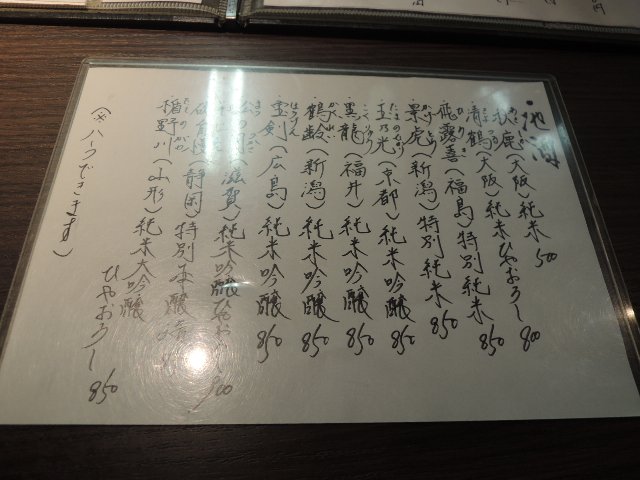 地酒
秋鹿(大阪)純米 500
清鶴(大阪)純米ひやおろし 800
飛露喜(福島)特別純米 850
景虎(新潟)特別純米 850
玉乃光(京都)純米吟醸 850
黒龍(福井)純米吟醸 850
鶴齢(新潟)純米吟醸 850
宝剣(広島)純米吟醸 850
(滋賀)純米吟醸ひやおろし 900
(静岡)特別本醸造
楯野川(山形)純米大吟醸
ひやおろし 850
(※ハーフできます)